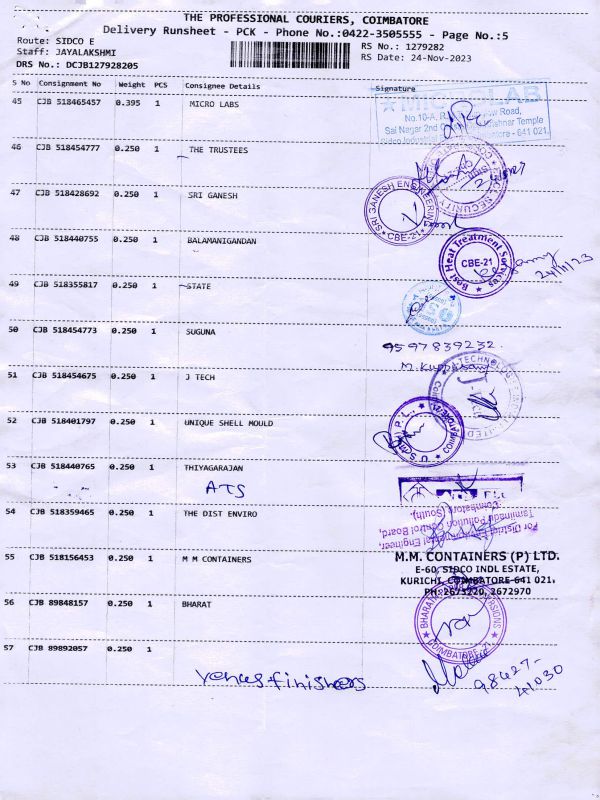 THE PROFESSIONAL COURIERS, COIMBATORE
Delivery Runsheet - PCK - Phone No.:0422-3505555 - Page No.:5
Route: SIDCO E
RS No.: 1279282
Staff: JAYALAKSHMI
RS Date: 24-Nov-2023
DRS No.: DCJB127928205
S No Consignment No Weight PCS Consignee Details Signature
45 CJB 518465457 0.395 1 MICRO LABS
No.10-A, Road,
Sai Nagar 2nd Temple
- 641 021.
46 CJB 518454777 0.250 1 THE TRUSTEES
SECURITY
47 CJB 518428692 0.250 1 SRI GANESH
SRI GANESH ENGINEERING
CBE-21
48 CJB 518440755 0.250 1 BALAMANIGANDAN
Best Heat Treatment Services
CBE-21
24/11/23
49 CJB 518355817 0.250 1 STATE
50 CJB 518454773 0.250 1 SUGUNA
9597839232
51 CJB 518454675 0.250 1 J TECH
52 CJB 518401797 0.250 1 UNIQUE SHELL MOULD
53 CJB 518440765 0.250 1 THIYAGARAJAN
ATS
54 CJB 518359465 0.250 1 THE DIST ENVIRO
For District Environmental Engineer,
Tamilnadu Pollution Control Board,
Coimbatore (South).
55 CJB 518156453 0.250 1 M M CONTAINERS
M.M. CONTAINERS (P) LTD.
E-60, SIDCO INDL ESTATE,
KURICHI, COIMBATORE-641 021.
PH: 2673220, 2672970
56 CJB 89848157 0.250 1 BHARAT
COIMBATORE
57 CJB 89892057 0.250 1
Venus finishers
98427-
41030